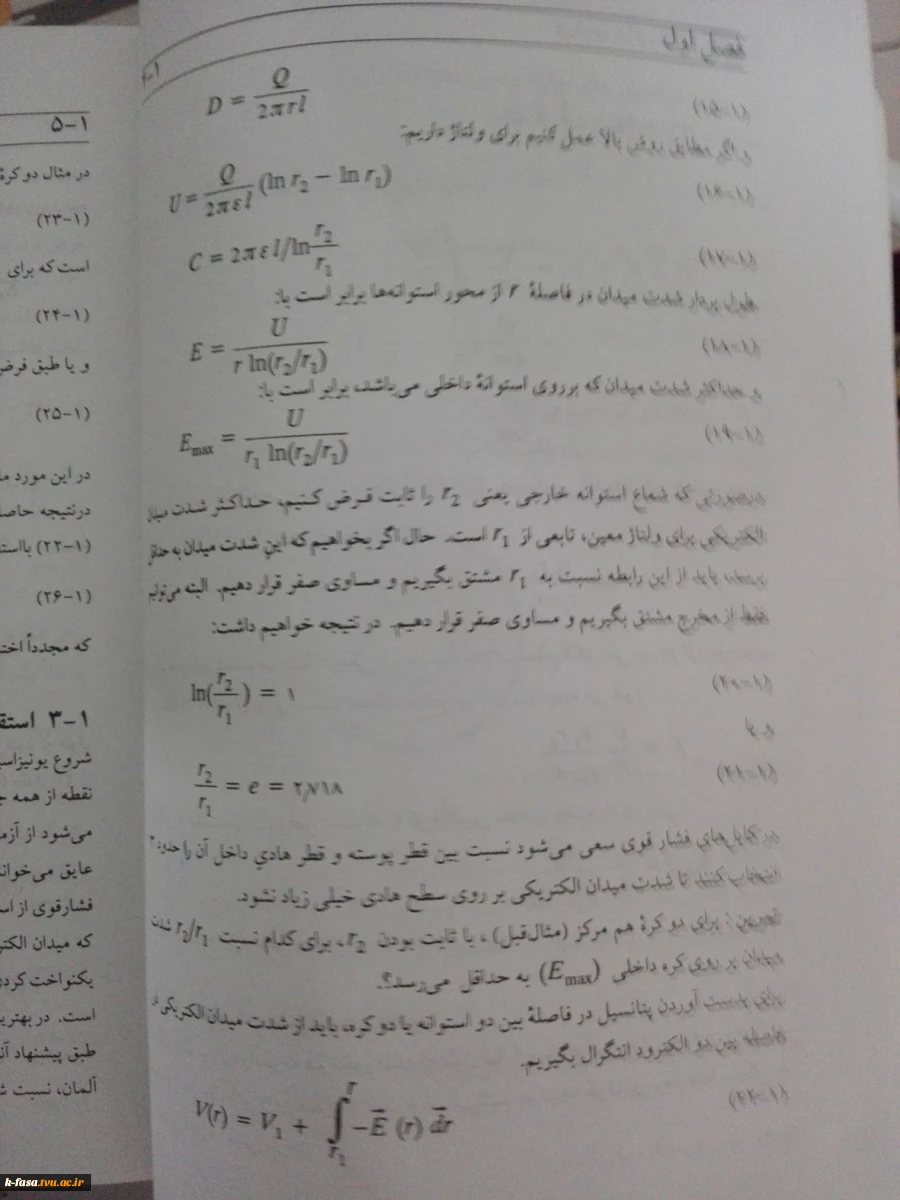 فصل اول
۱-
D = Q / 2πrl (۱۵-۱)
و اگر مطابق روش بالا عمل کنیم برای ولتاژ داریم:
U = Q / 2πεl (ln r₂ − ln r₁) (۱۶-۱)
C = 2πεl/ln r₂/r₁ (۱۷-۱)
طول بردار شدت میدان در فاصلهٔ r از محور استوانه‌ها برابر است با:
E = U / r ln(r₂/r₁) (۱۸-۱)
و حداکثر شدت میدان که برروی استوانهٔ داخلی می‌باشد، برابر است با:
E_max = U / r₁ ln(r₂/r₁) (۱۹-۱)
درصورتی که شعاع استوانه خارجی یعنی r₂ را ثابت فرض کنیم، حداکثر شدت میدان
الکتریکی برای ولتاژ معین، تابعی از r₁ است. حال اگر بخواهیم که این شدت میدان به حداقل
برسد، باید از این رابطه نسبت به r₁ مشتق بگیریم و مساوی صفر قرار دهیم. البته می‌توانیم
فقط از مخرج مشتق بگیریم و مساوی صفر قرار دهیم. در نتیجه خواهیم داشت:
ln(r₂/r₁) = ۱ (۲۰-۱)
و یا
r₂/r₁ = e = ۲٫۷۱۸ (۲۱-۱)
در کابل‌های فشار قوی سعی می‌شود نسبت بین قطر پوسته و قطر هادی داخل آن را حدود
انتخاب کنند تا شدت میدان الکتریکی بر روی سطح هادی خیلی زیاد نشود.
تمرین: برای دو کرهٔ هم مرکز (مثال قبل)، با ثابت بودن r₂، برای کدام نسبت r₂/r₁ شدت
میدان بر روی کره داخلی (E_max) به حداقل می‌رسد؟.
برای بدست آوردن پتانسیل در فاصلهٔ بین دو استوانه یا دو کره، باید از شدت میدان الکتریکی در
فاصله بین دو الکترود انتگرال بگیریم.
V(r) = V₁ + ∫ −E (r) dr (۲۲-۱)
۵-۱
در مثال دو کرهٔ
(۲۳-۱)
است که برای
(۲۴-۱)
و یا طبق فرض
(۲۵-۱)
در این مورد
درنتیجه
(۲۲-۱)
(۲۶-۱)
که مجدداً
۳-۱
شروع
نقطه از همه
می‌شود از
عایق
فشارقوی از
که میدان
یکنواخت
است. در
طبق پیشنهاد
آلمان، نسبت
k-fasa.tvu.ac.ir